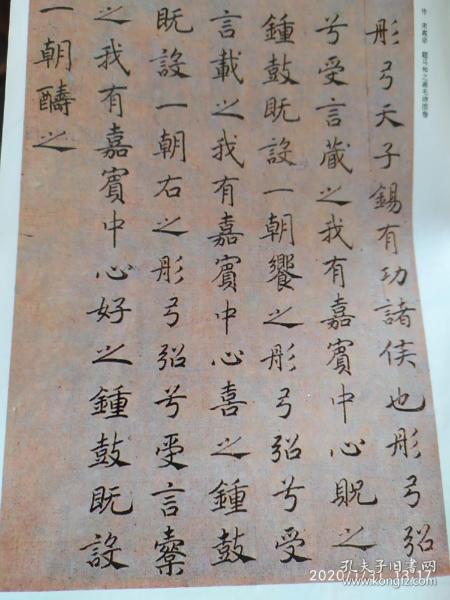 彤弓天子錫有功諸侯也彤弓弨
兮受言藏之我有嘉賓中心貺之
鍾鼓既設一朝饗之彤弓弨兮受
言載之我有嘉賓中心喜之鍾鼓
既設一朝右之彤弓弨兮受言櫜
之我有嘉賓中心好之鍾鼓既設
一朝醻之
2020/1/11 13:17
孔夫子旧书网